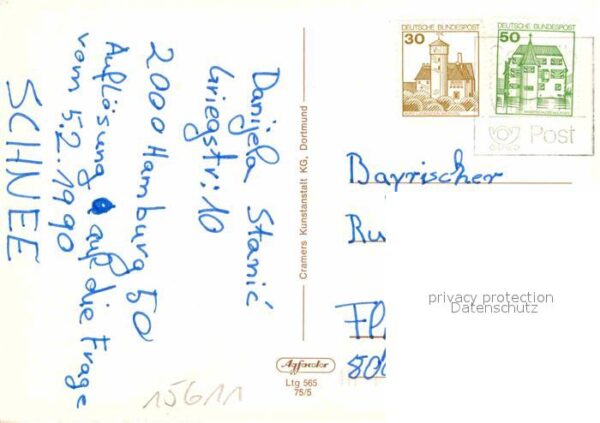 Danijela Stanić
Kriegstr: 10
2000 Hamburg 50
Auflösung auf die Frage
vom 5.2.1990
SCHNEE
15611
Cramers Kunstanstalt KG, Dortmund
Ltg 565
75/5
DEUTSCHE BUNDESPOST
30
DEUTSCHE BUNDESPOST
50
Post
Bayrischer
Ru
privacy protection
Datenschutz
Fl
80